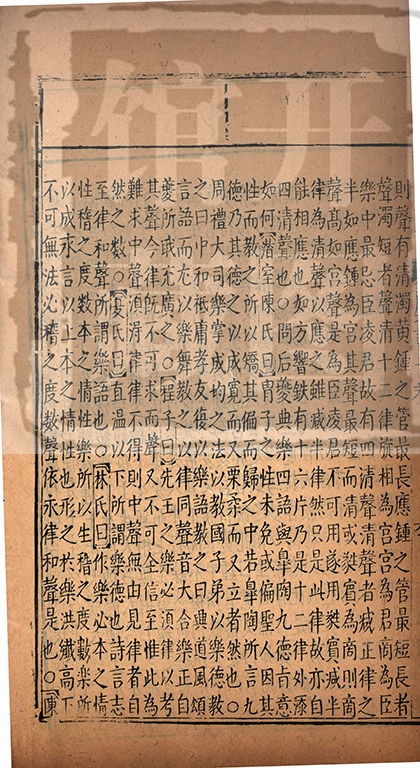 則聲有清濁黃鍾之管最長應鍾之管最短長者
聲濁短者聲清十二律旋相為宮宮為君商為臣
樂中最忌臣凌君故有四清聲清聲者減正律之
半如應鍾為宮其聲最短而清或蕤賓為商則商
聲高如宮為臣凌君不可用遂用蕤賓減半
律為清聲以應之雖減半律然只是此律故亦自
能相應也如方響鐵有十六片乃是十二律外添
四清聲也○問后夔典樂四語與皐陶九德亦意
如何潛室陳氏曰胄子之性未免或偏聖人因其
性而教之所以矯其偏而歸之中若皐陶所言九
德乃其德之成寬而又栗柔而又立者然也○
周禮大司樂掌成均之法以教國子弟以樂德教
之曰中和祗庸孝友復以樂語教之曰興道風頌
言語而尤以樂舞教之以六律同聲音大合樂正
夔所或充廣之○程子曰先王之樂必須律以考
其聲今律既不可求而聲又不可全信正惟此為
難求中聲須律律不得則中聲無由見律者自
然之數○夏氏曰直溫以下所謂樂德也詩言志
至律和聲所謂樂語也○林氏曰作樂必本之情
性稽之度數本之情性樂所以生稽之度數樂所
以成永言以上本之情性也形之於樂洪纖高下
不可無法必稽之度數聲依永律和聲是也○陳